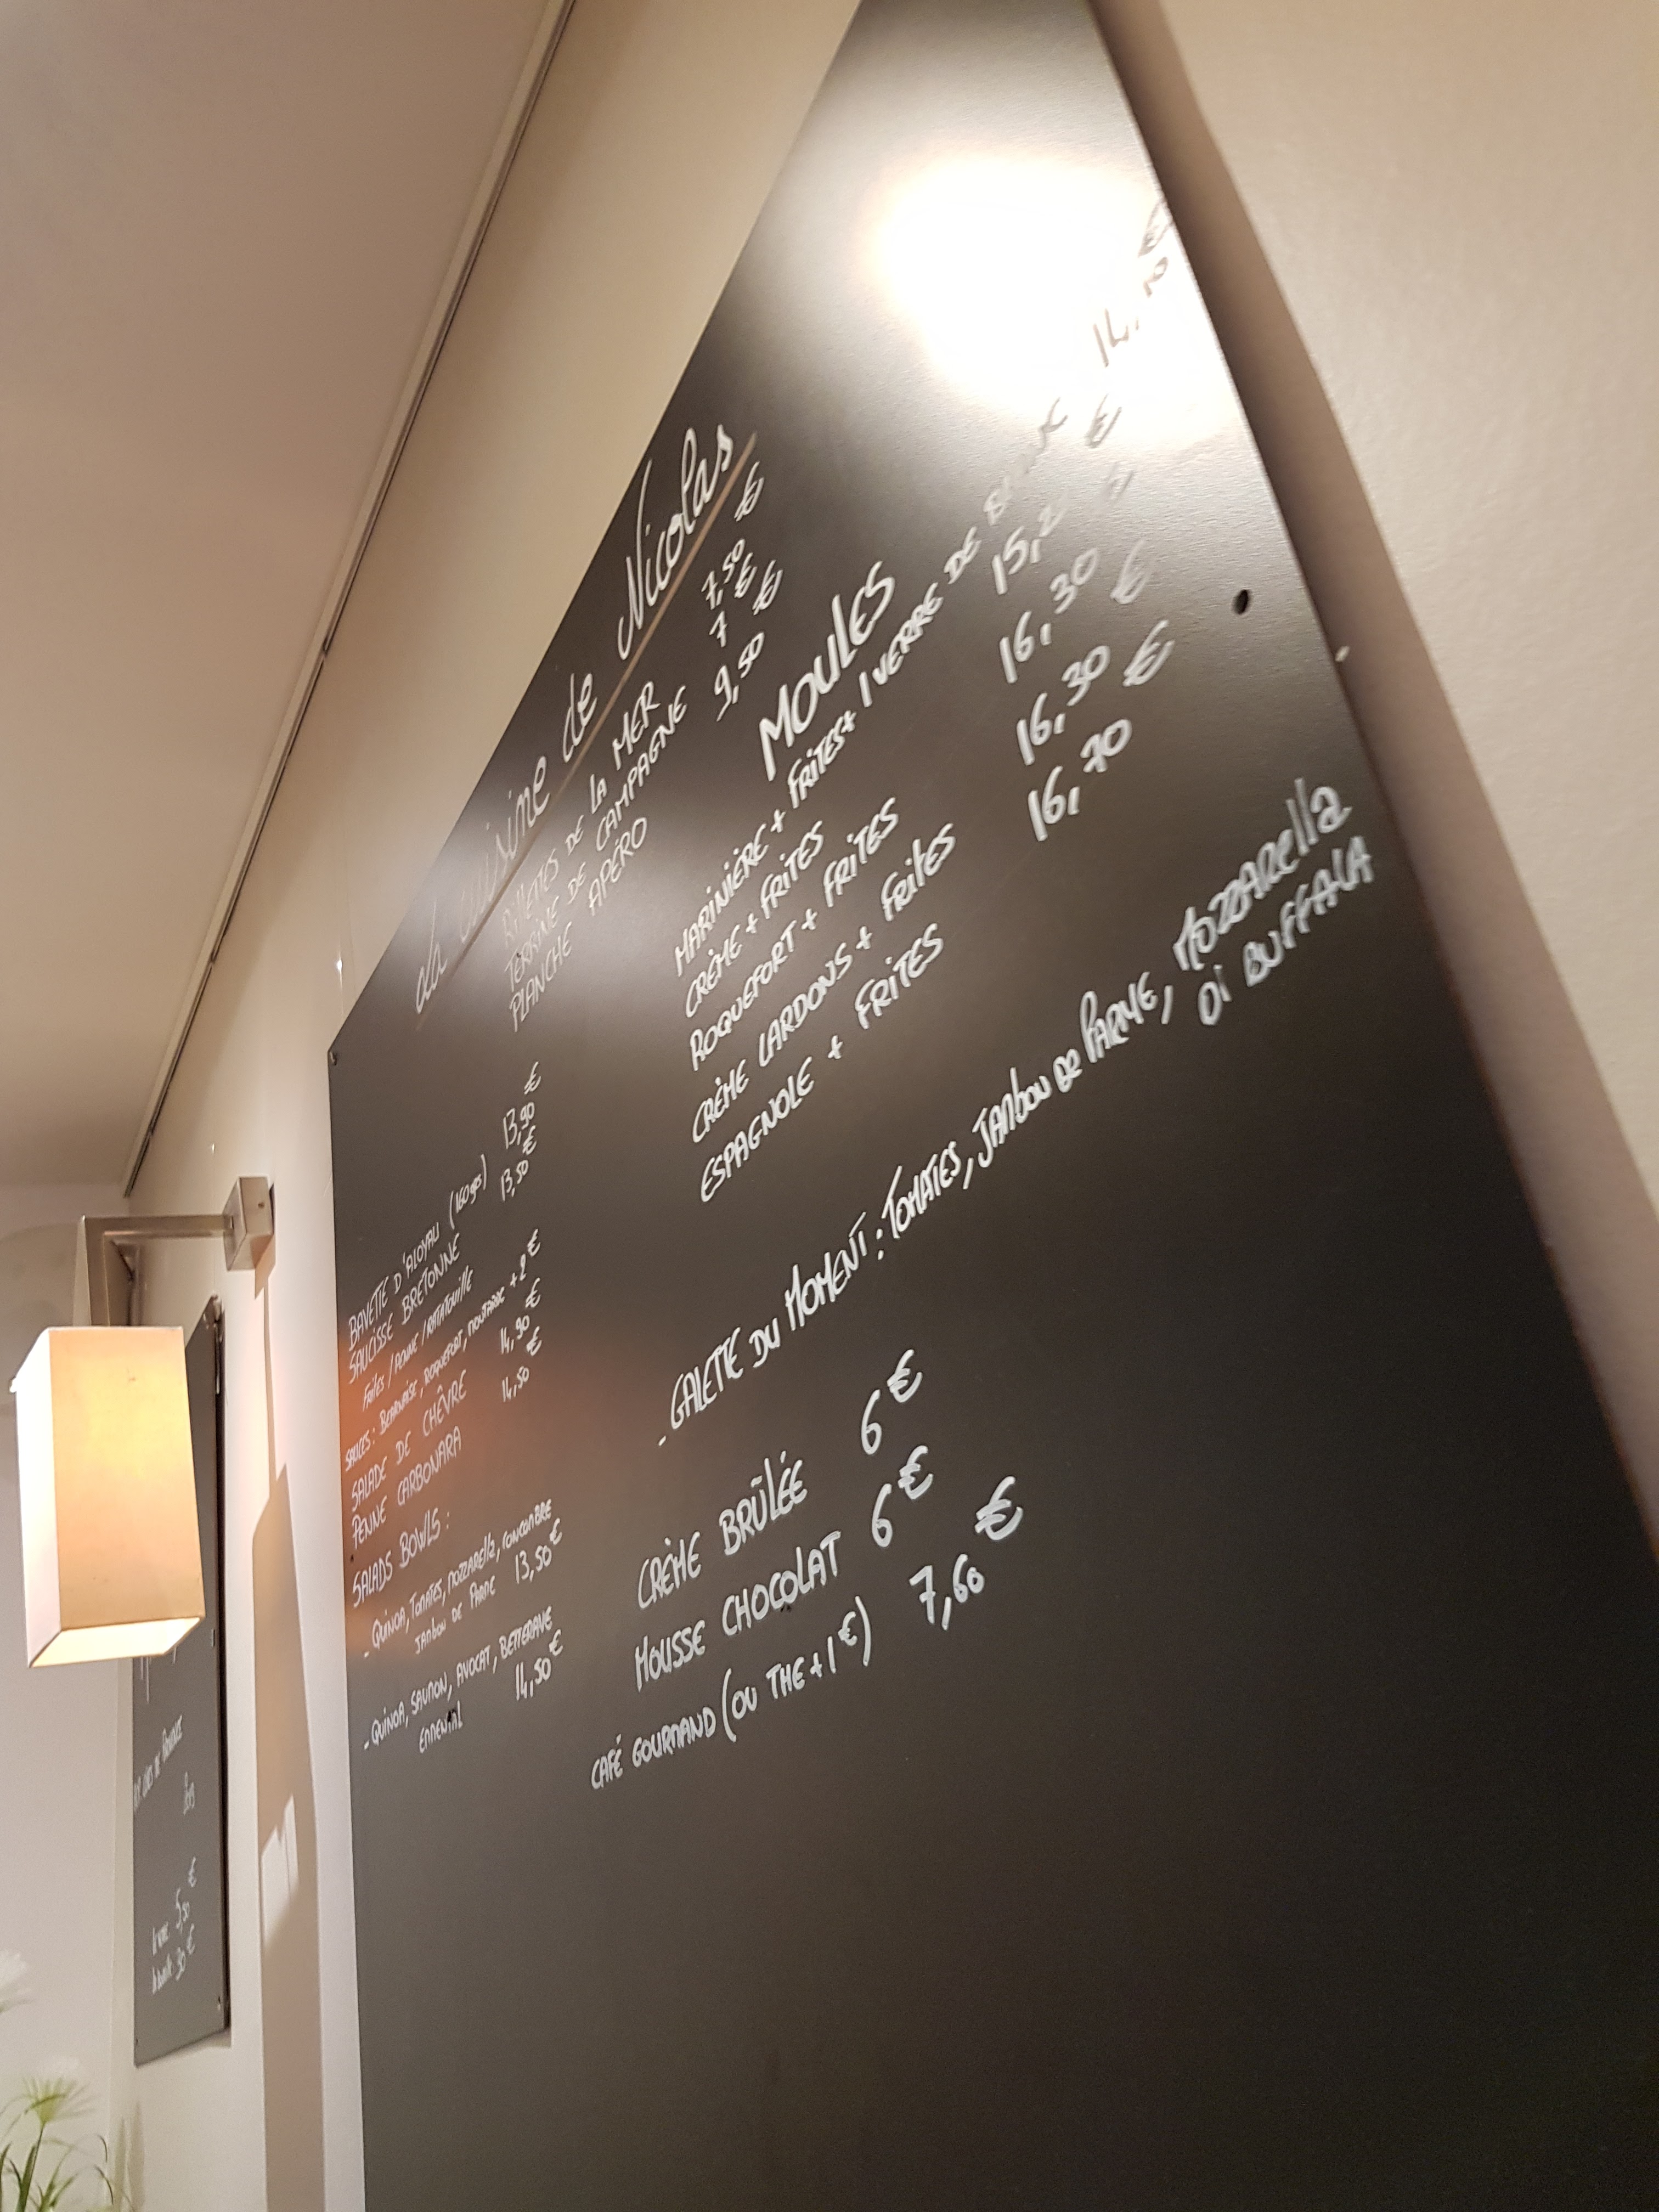 La cuisine de Nicolas
RILLETTES DE LA MER 7,50 €
TERRINE DE CAMPAGNE 7 €
PLANCHE APÉRO 9,50 €
BAVETTE D'ALOYAU (160grs) 13,90 €
SAUCISSE BRETONNE 13,50 €
FRITES / PENNE / RATATOUILLE
SAUCES : BEARNAISE, ROQUEFORT, MOUTARDE + 2 €
SALADE DE CHÊVRE 14,90 €
PENNE CARBONARA 14,50 €
SALADS BOWLS :
- QUINOA, TOMATES, MOZZARELLA, CONCOMBRE
JAMBON DE PARME 13,50 €
- QUINOA, SAUMON, AVOCAT, BETTERAVE
EMMENTAL 14,50 €
MOULES
MARINIÈRE + FRITES + 1 VERRE DE 14,
CRÈME + FRITES 15,2 €
ROQUEFORT + FRITES 16,30
CRÈME LARDONS + FRITES 16,30 €
ESPAGNOLE + FRITES 16,70 €
- GALETTE DU MOMENT : TOMATES, JAMBON DE PARME, MOZZARELLA
DI BUFFALA
CRÈME BRÛLÉE 6 €
MOUSSE CHOCOLAT 6 €
CAFÉ GOURMAND (OU THE + 1 €) 7,60 €
DE
2019
5,50 €
30 €